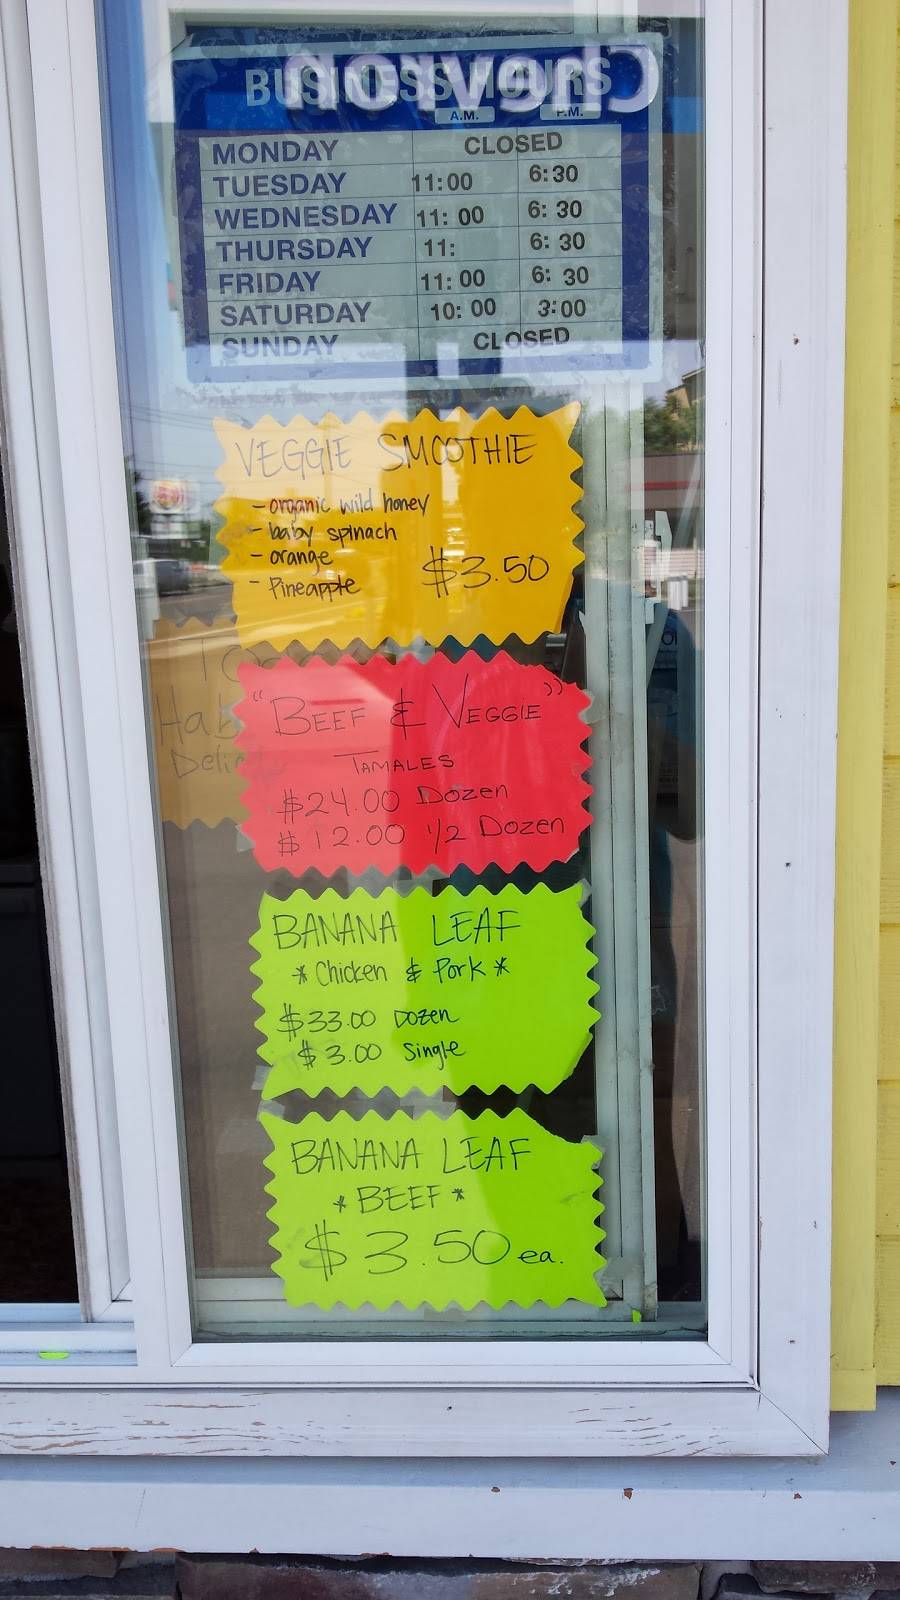 Chevron
BUSINESS HOURS
A.M. P.M.
MONDAY CLOSED
TUESDAY 11:00 6:30
WEDNESDAY 11:00 6:30
THURSDAY 11: 6:30
FRIDAY 11:00 6:30
SATURDAY 10:00 3:00
SUNDAY CLOSED
VEGGIE SMOOTHIE
- organic wild honey
- baby spinach
- orange
- Pineapple $3.50
"BEEF & VEGGIE"
TAMALES
$24.00 Dozen
$12.00 1/2 Dozen
BANANA LEAF
* Chicken & Pork *
$33.00 Dozen
$3.00 Single
BANANA LEAF
* BEEF *
$3.50 ea.